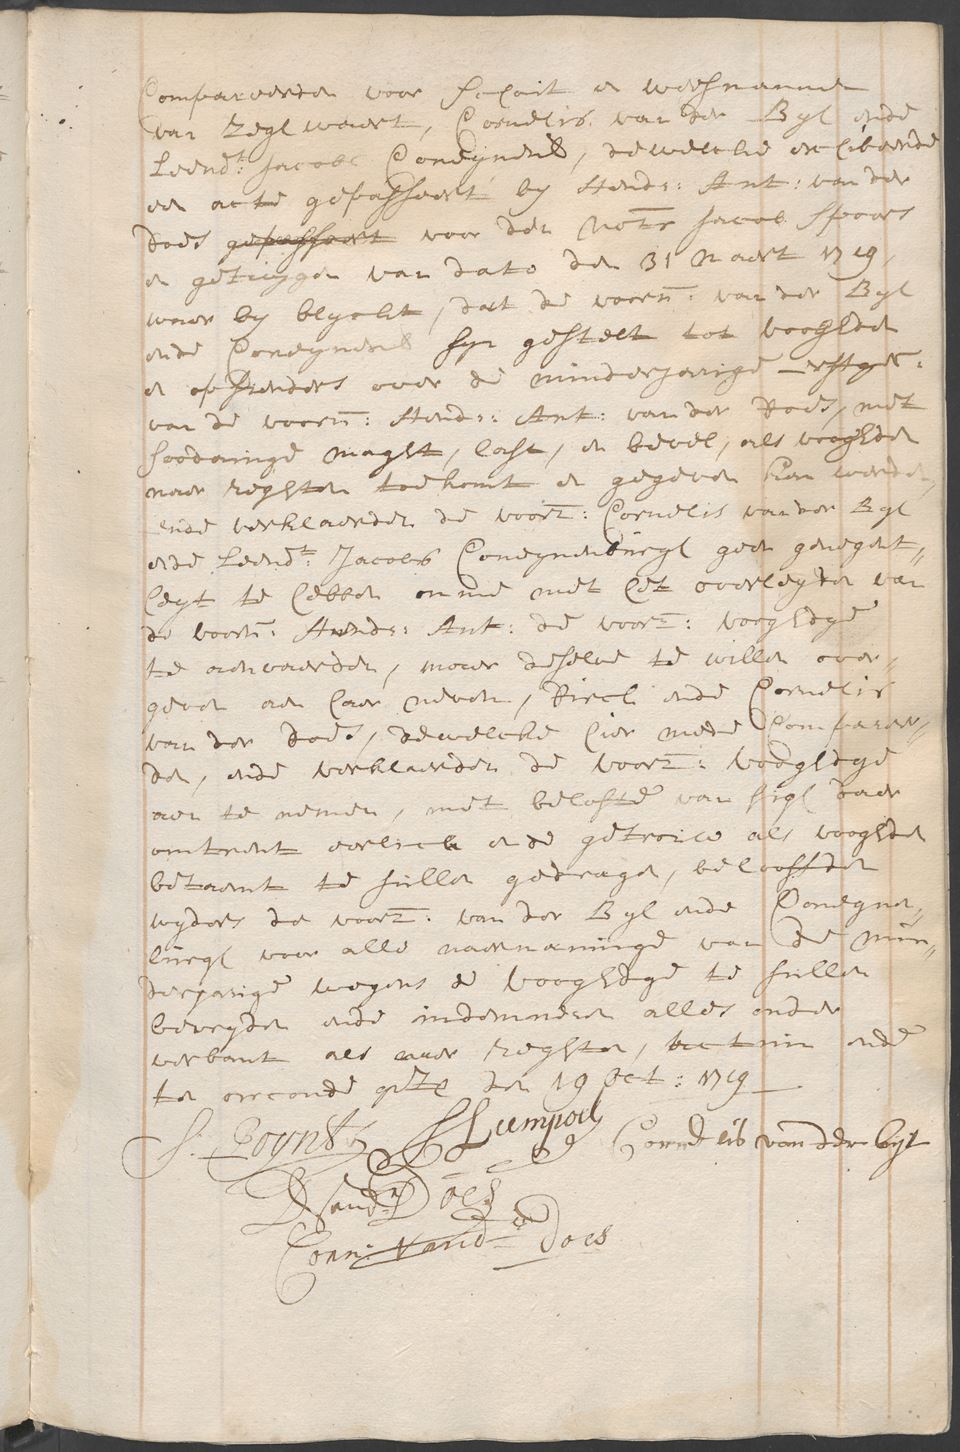 Compareerden voor Schout en weesmannen
van Zegl waert, Cornelis van der Byl ende
Leend:t Jacobs Coneynenb, dewelcke exhibeerde
een acte gepasseert by Hend:r: Ant: van der
Does gepasseert voor den Not:s Jacob Spoors
en getuygen van dato den 31 Maert 1719,
waer by blyckt, dat de voorn: van der Byl
ende Coneynenb syn gestelt tot vooghden
en opsienders over de minderjarige erfgen:
van de voorn: Hend:r: Ant: van der Does, met
soodanige maght, last, en bevel, als vooghden
naer reghten toekomt en gegeven kan werden,
ende verklaerden de voorz: Cornelis van der Byl
ende Leend:t Jacobs Coneynenburgh geen genegent„
heyt te hebben omme met het overleyden van
de voorn: Hend:r: Ant: de voorz: vooghdye
te aenvaerden, maer deselve te willen over„
geven aen haer neven, Dirck ende Cornelis
van der Does, dewelcke hier mede compareer„
den, ende verklaerden de voorz: vooghdye
aen te nemen, met belofte van sigh daer
omtrent eerlick ende getrouw als vooghden
betaemt te sullen gedragen, beloofden
wyders de voorz: van der Byl ende Coneynen„
burgh voor alle naermaninge van de min„
derjarige wegens de vooghdye te sullen
bevryden ende indemneren alles onder
verbant als naer reghten, actum ende
ten oirconde get: den 19 Oct: 1719
Cornelis van der byl
D vand:r Does
Corn: Vand:r Does